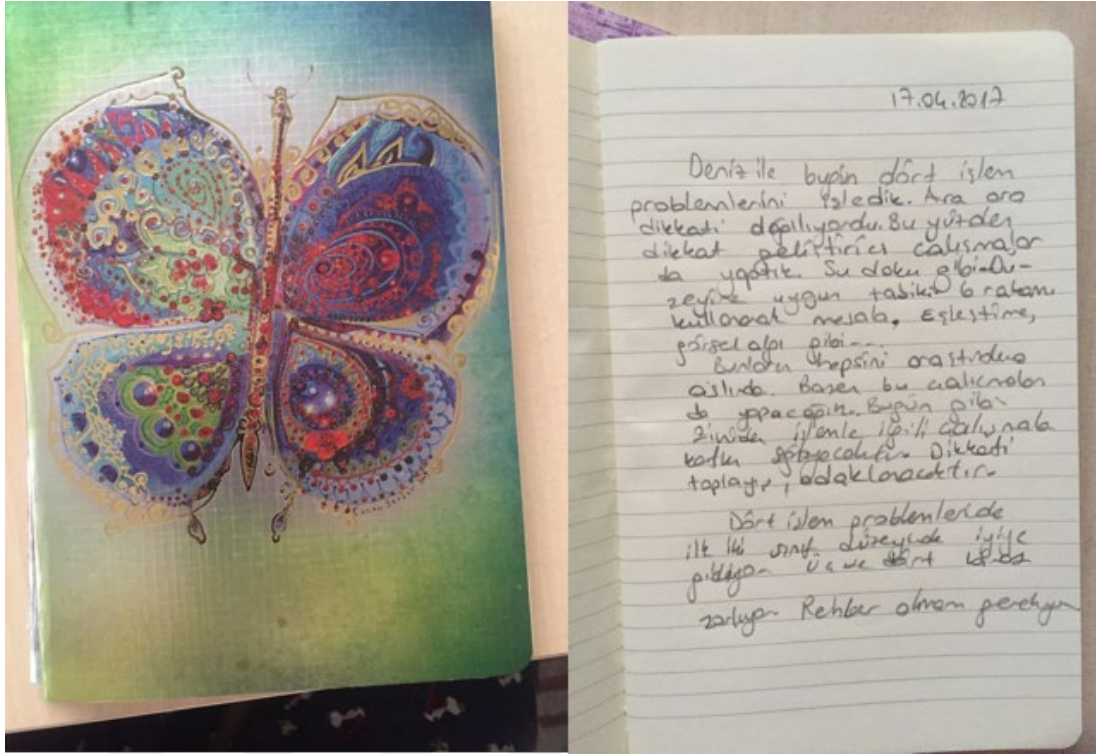 17.04.2017
Deniz ile bugün dört işlem
problemlerini işledik. Ara ara
dikkati dağılıyordu. Bu yüzden
dikkat geliştirici çalışmalar
da yaptık. Su doku gibi. Dü-
zeyine uygun tabiki. 6 rakam
kullanarak mesela. Eşleştirme,
görsel algı gibi...
Bunların hepsini araştırdım
aslında. Bazen bu çalışmaları
da yapacağım. Bugün gibi.
Zihinden işlemle ilgili çalışmala
katkı sağlayacaktır. Dikkati
toplayıp, odaklanacaktır.
Dört işlem problemleride
ilk iki sınıf düzeyinde iyiye
gidiyor. Üç ve dört
zorluyor. Rehber olmam gerekiyor